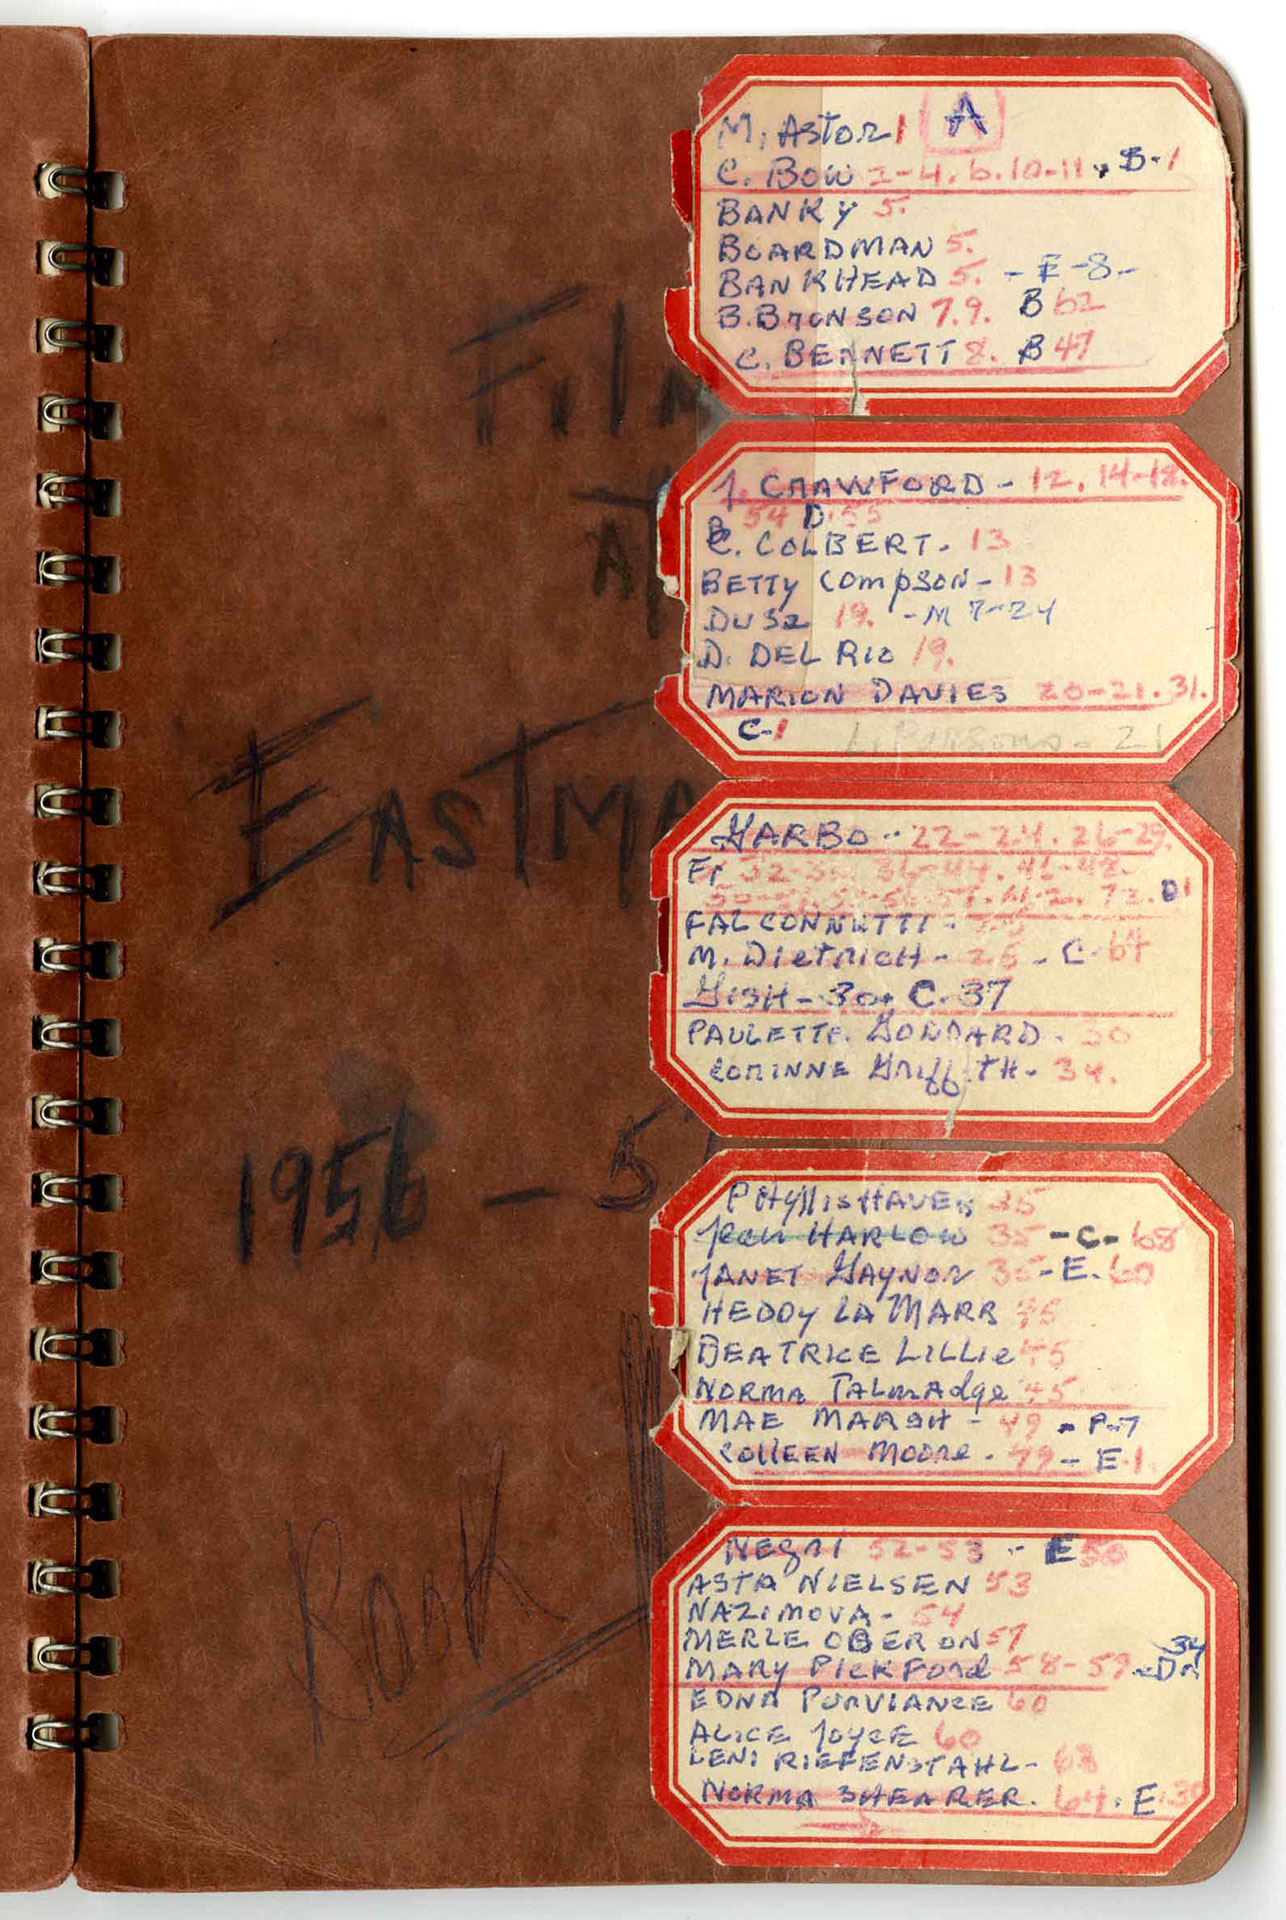 FILM
AT
EASTMA
1956 - 5
Book
M. Astor 1 A
C. Bow 2-4. 6. 10-11, B-1
BANKY 5.
BOARDMAN 5.
BANKHEAD 5. - E-8-
B. BRONSON 7.9. B 62
C. BENNETT 8. B 47
J. CRAWFORD - 12. 14-18.
54 D. 55
C. COLBERT. 13
BETTY Compson - 13
DUSE 19. - M 7-24
D. DEL RIO 19.
MARION DAVIES 20-21. 31.
C-1 L. Parsons - 21
GARBO - 22-24. 26-29.
32- 36-44. 46-48.
72. D1
FALCONNETTI -
M. Dietrich - 25 - C-64
GISH - 30. C. 37
PAULETTE GODDARD - 30
CORINNE Griffith - 34.
PHYllis HAVER 35
Jean HARLOW 35 - C - 68
JANET GAYNOR 35 - E. 60
HEDDY LA MARR 45
BEATRICE LILLIE 45
NORMA TALMAdge 45
MAE MARSH - 49 - P-7
COLLEEN MOORE - 49 - E 1.
NEGRI 52-53 - E 50
ASTA NIELSEN 53
NAZIMOVA - 54
MERLE OBERON 57
MARY PICKFORD 58-59 - D 34
EDNA PURVIANCE 60
ALICE JOYCE 60
LENI RIEFENSTAHL - 63
NORMA SHEARER. 64. E. 30